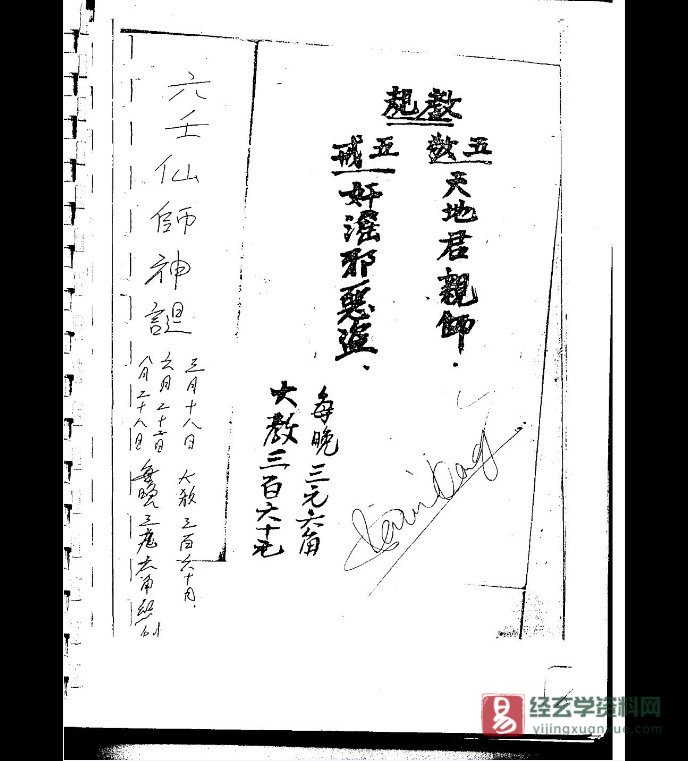 教規
五敬
天地君親師.
五戒
奸淫邪惡盜.
每晚三元六角
大教三百六十元
六壬仙師神誕
三月十八日 大教三百六十元.
六月二十日
八月二十八日 每晚三元六角
經玄学资料网
yijingxuanxue.com